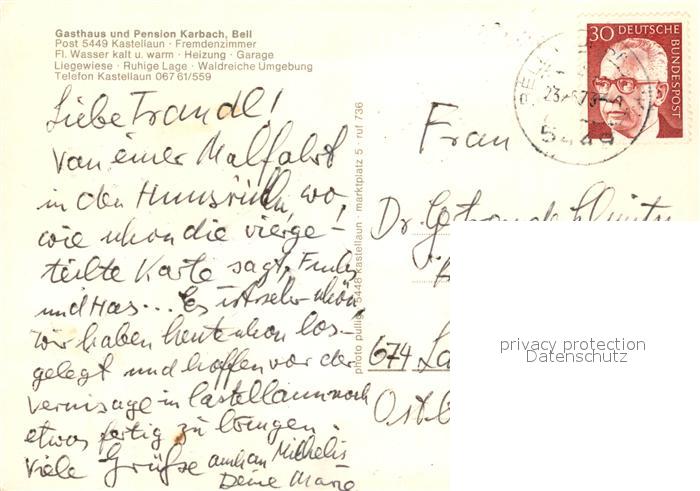 Gasthaus und Pension Karbach, Bell
Post 5449 Kastellaun · Fremdenzimmer
Fl. Wasser kalt u. warm · Heizung · Garage
Liegewiese · Ruhige Lage · Waldreiche Umgebung
Telefon Kastellaun 067 61/559
Liebe Traudl!
Von einer Malfahrt
in den Hunsrück, wo,
wie schon die vierge-
teilte Karte sagt, Fuchs
und Has... Es ist sehr schön
wir haben heute schon los-
gelegt und hoffen vor der
Vernisage in Castellaun noch
etwas fertig zu bringen.
Viele Grüße
Deine
photo pullig · 5448 kastellaun · marktplatz 5 · ruf 736
30 DEUTSCHE
BUNDESPOST
Frau
Dr.
674 La
Ostb
privacy protection
Datenschutz